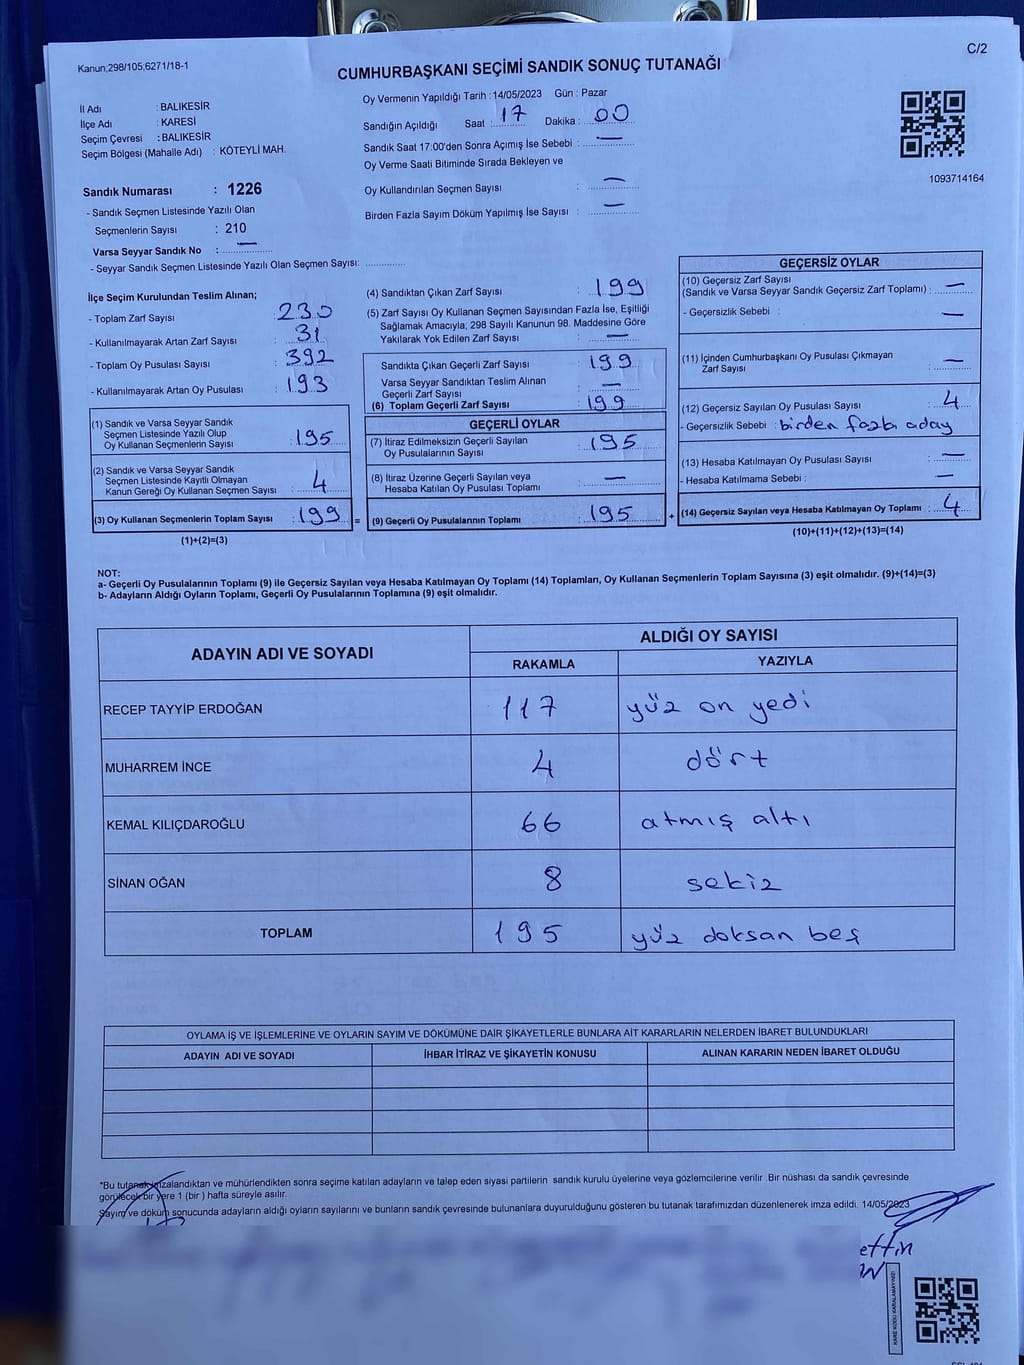 Kanun;298/105;6271/18-1
C/2
CUMHURBAŞKANI SEÇİMİ SANDIK SONUÇ TUTANAĞI
İl Adı : BALIKESİR
İlçe Adı : KARESİ
Seçim Çevresi : BALIKESİR
Seçim Bölgesi (Mahalle Adı) : KÖTEYLİ MAH.
Oy Vermenin Yapıldığı Tarih :14/05/2023 Gün : Pazar
Sandığın Açıldığı Saat : 17 Dakika : 00
Sandık Saat 17:00'den Sonra Açımış İse Sebebi : —
Oy Verme Saati Bitiminde Sırada Bekleyen ve
Oy Kullandırılan Seçmen Sayısı : —
Birden Fazla Sayım Döküm Yapılmış İse Sayısı : —
1093714164
Sandık Numarası : 1226
- Sandık Seçmen Listesinde Yazılı Olan
Seçmenlerin Sayısı : 210
Varsa Seyyar Sandık No : —
- Seyyar Sandık Seçmen Listesinde Yazılı Olan Seçmen Sayısı: ............
İlçe Seçim Kurulundan Teslim Alınan;
- Toplam Zarf Sayısı : 230
- Kullanılmayarak Artan Zarf Sayısı : 31
- Toplam Oy Pusulası Sayısı : 392
- Kullanılmayarak Artan Oy Pusulası : 193
(1) Sandık ve Varsa Seyyar Sandık
Seçmen Listesinde Yazılı Olup
Oy Kullanan Seçmenlerin Sayısı : 195
(2) Sandık ve Varsa Seyyar Sandık
Seçmen Listesinde Kayıtlı Olmayan
Kanun Gereği Oy Kullanan Seçmen Sayısı : 4
(3) Oy Kullanan Seçmenlerin Toplam Sayısı : 199 =
(1)+(2)=(3)
(4) Sandıktan Çıkan Zarf Sayısı : 199
(5) Zarf Sayısı Oy Kullanan Seçmen Sayısından Fazla İse, Eşitliği
Sağlamak Amacıyla; 298 Sayılı Kanunun 98. Maddesine Göre
Yakılarak Yok Edilen Zarf Sayısı : —
Sandıkta Çıkan Geçerli Zarf Sayısı : 199
Varsa Seyyar Sandıktan Teslim Alınan
Geçerli Zarf Sayısı : —
(6) Toplam Geçerli Zarf Sayısı : 199
GEÇERLİ OYLAR
(7) İtiraz Edilmeksizin Geçerli Sayılan
Oy Pusulalarının Sayısı : 195
(8) İtiraz Üzerine Geçerli Sayılan veya
Hesaba Katılan Oy Pusulası Toplamı : —
(9) Geçerli Oy Pusulalarının Toplamı : 195 +
GEÇERSİZ OYLAR
(10) Geçersiz Zarf Sayısı
(Sandık ve Varsa Seyyar Sandık Geçersiz Zarf Toplamı) : —
- Geçersizlik Sebebi : —
(11) İçinden Cumhurbaşkanı Oy Pusulası Çıkmayan
Zarf Sayısı : —
(12) Geçersiz Sayılan Oy Pusulası Sayısı : 4
- Geçersizlik Sebebi : birden fazla aday
(13) Hesaba Katılmayan Oy Pusulası Sayısı : —
- Hesaba Katılmama Sebebi : —
(14) Geçersiz Sayılan veya Hesaba Katılmayan Oy Toplamı : 4
(10)+(11)+(12)+(13)=(14)
NOT:
a- Geçerli Oy Pusulalarının Toplamı (9) ile Geçersiz Sayılan veya Hesaba Katılmayan Oy Toplamı (14) Toplamları, Oy Kullanan Seçmenlerin Toplam Sayısına (3) eşit olmalıdır. (9)+(14)=(3)
b- Adayların Aldığı Oyların Toplamı, Geçerli Oy Pusulalarının Toplamına (9) eşit olmalıdır.
ADAYIN ADI VE SOYADI ALDIĞI OY SAYISI
RAKAMLA YAZIYLA
RECEP TAYYİP ERDOĞAN 117 yüz on yedi
MUHARREM İNCE 4 dört
KEMAL KILIÇDAROĞLU 66 atmış altı
SİNAN OĞAN 8 sekiz
TOPLAM 195 yüz doksan beş
OYLAMA İŞ VE İŞLEMLERİNE VE OYLARIN SAYIM VE DÖKÜMÜNE DAİR ŞİKAYETLERLE BUNLARA AİT KARARLARIN NELERDEN İBARET BULUNDUKLARI
ADAYIN ADI VE SOYADI İHBAR İTİRAZ VE ŞİKAYETİN KONUSU ALINAN KARARIN NEDEN İBARET OLDUĞU
*Bu tutanak imzalandıktan ve mühürlendikten sonra seçime katılan adayların ve talep eden siyasi partilerin sandık kurulu üyelerine veya gözlemcilerine verilir. Bir nüshası da sandık çevresinde
görülecek bir yere 1 (bir ) hafta süreyle asılır.
Sayım ve döküm sonucunda adayların aldığı oyların sayılarını ve bunların sandık çevresinde bulunanlara duyurulduğunu gösteren bu tutanak tarafımızdan düzenlenerek imza edildi. 14/05/2023
ettin